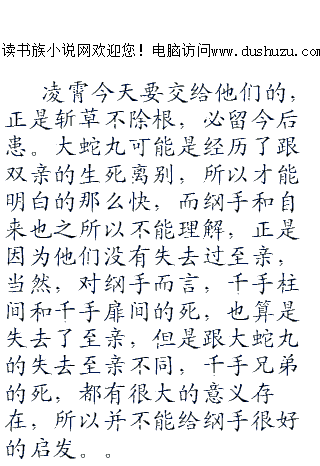 读书族小说网欢迎您！电脑访问www.dushuzu.com
凌霄今天要交给他们的，
正是斩草不除根，必留今后
患。大蛇丸可能是经历了跟
双亲的生死离别，所以才能
明白的那么快，而纲手和自
来也之所以不能理解，正是
因为他们没有失去过至亲，
当然，对纲手而言，千手柱
间和千手扉间的死，也算是
失去了至亲，但是跟大蛇丸
的失去至亲不同，千手兄弟
的死，都有很大的意义存
在，所以并不能给纲手很好
的启发。。